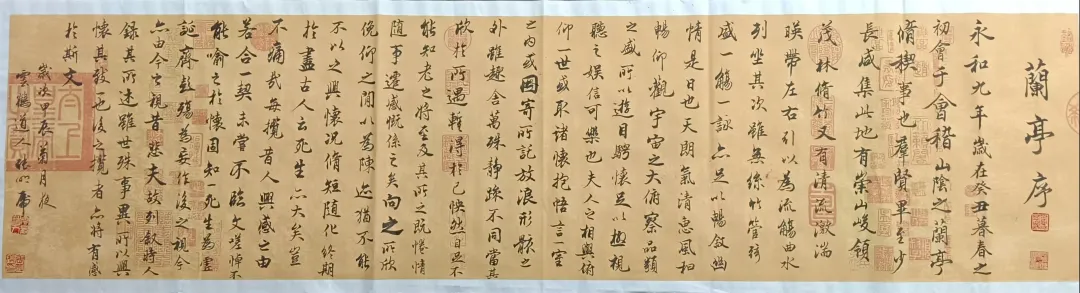 蘭亭序
永和九年歲在癸丑暮春之
初會于會稽山陰之蘭亭
脩稧事也群賢畢至少
長咸集此地有崇山峻領
茂林脩竹又有清流激湍
暎帶左右引以為流觴曲水
列坐其次雖無絲竹管弦
盛一觴一詠亦足以暢敘幽
情是日也天朗氣清惠風和
暢仰觀宇宙之大俯察品類
之盛所以遊目騁懷足以極視
聽之娛信可樂也夫人之相與俯
仰一世或取諸懷抱悟言一室
之內或因寄所託放浪形骸之
外雖趣舍萬殊靜躁不同當其
欣於所遇暫得於己怏然自足不
能知老之將至及其所之既惓情
隨事遷感慨係之矣向之所欣
俛仰之閒以為陳迹猶不能
不以之興懷況脩短隨化終期
於盡古人云死生亦大矣豈
不痛哉每攬昔人興感之由
若合一契未嘗不臨文嗟悼不
能喻之於懷固知一死生為虛
誕齊彭殤為妄作後之視今
亦由今之視昔悲夫故列敘時人
錄其所述雖世殊事異所以興
懷其致一也後之攬者亦將有感
於斯文
歲次甲辰菊月
雲鶴道人張明